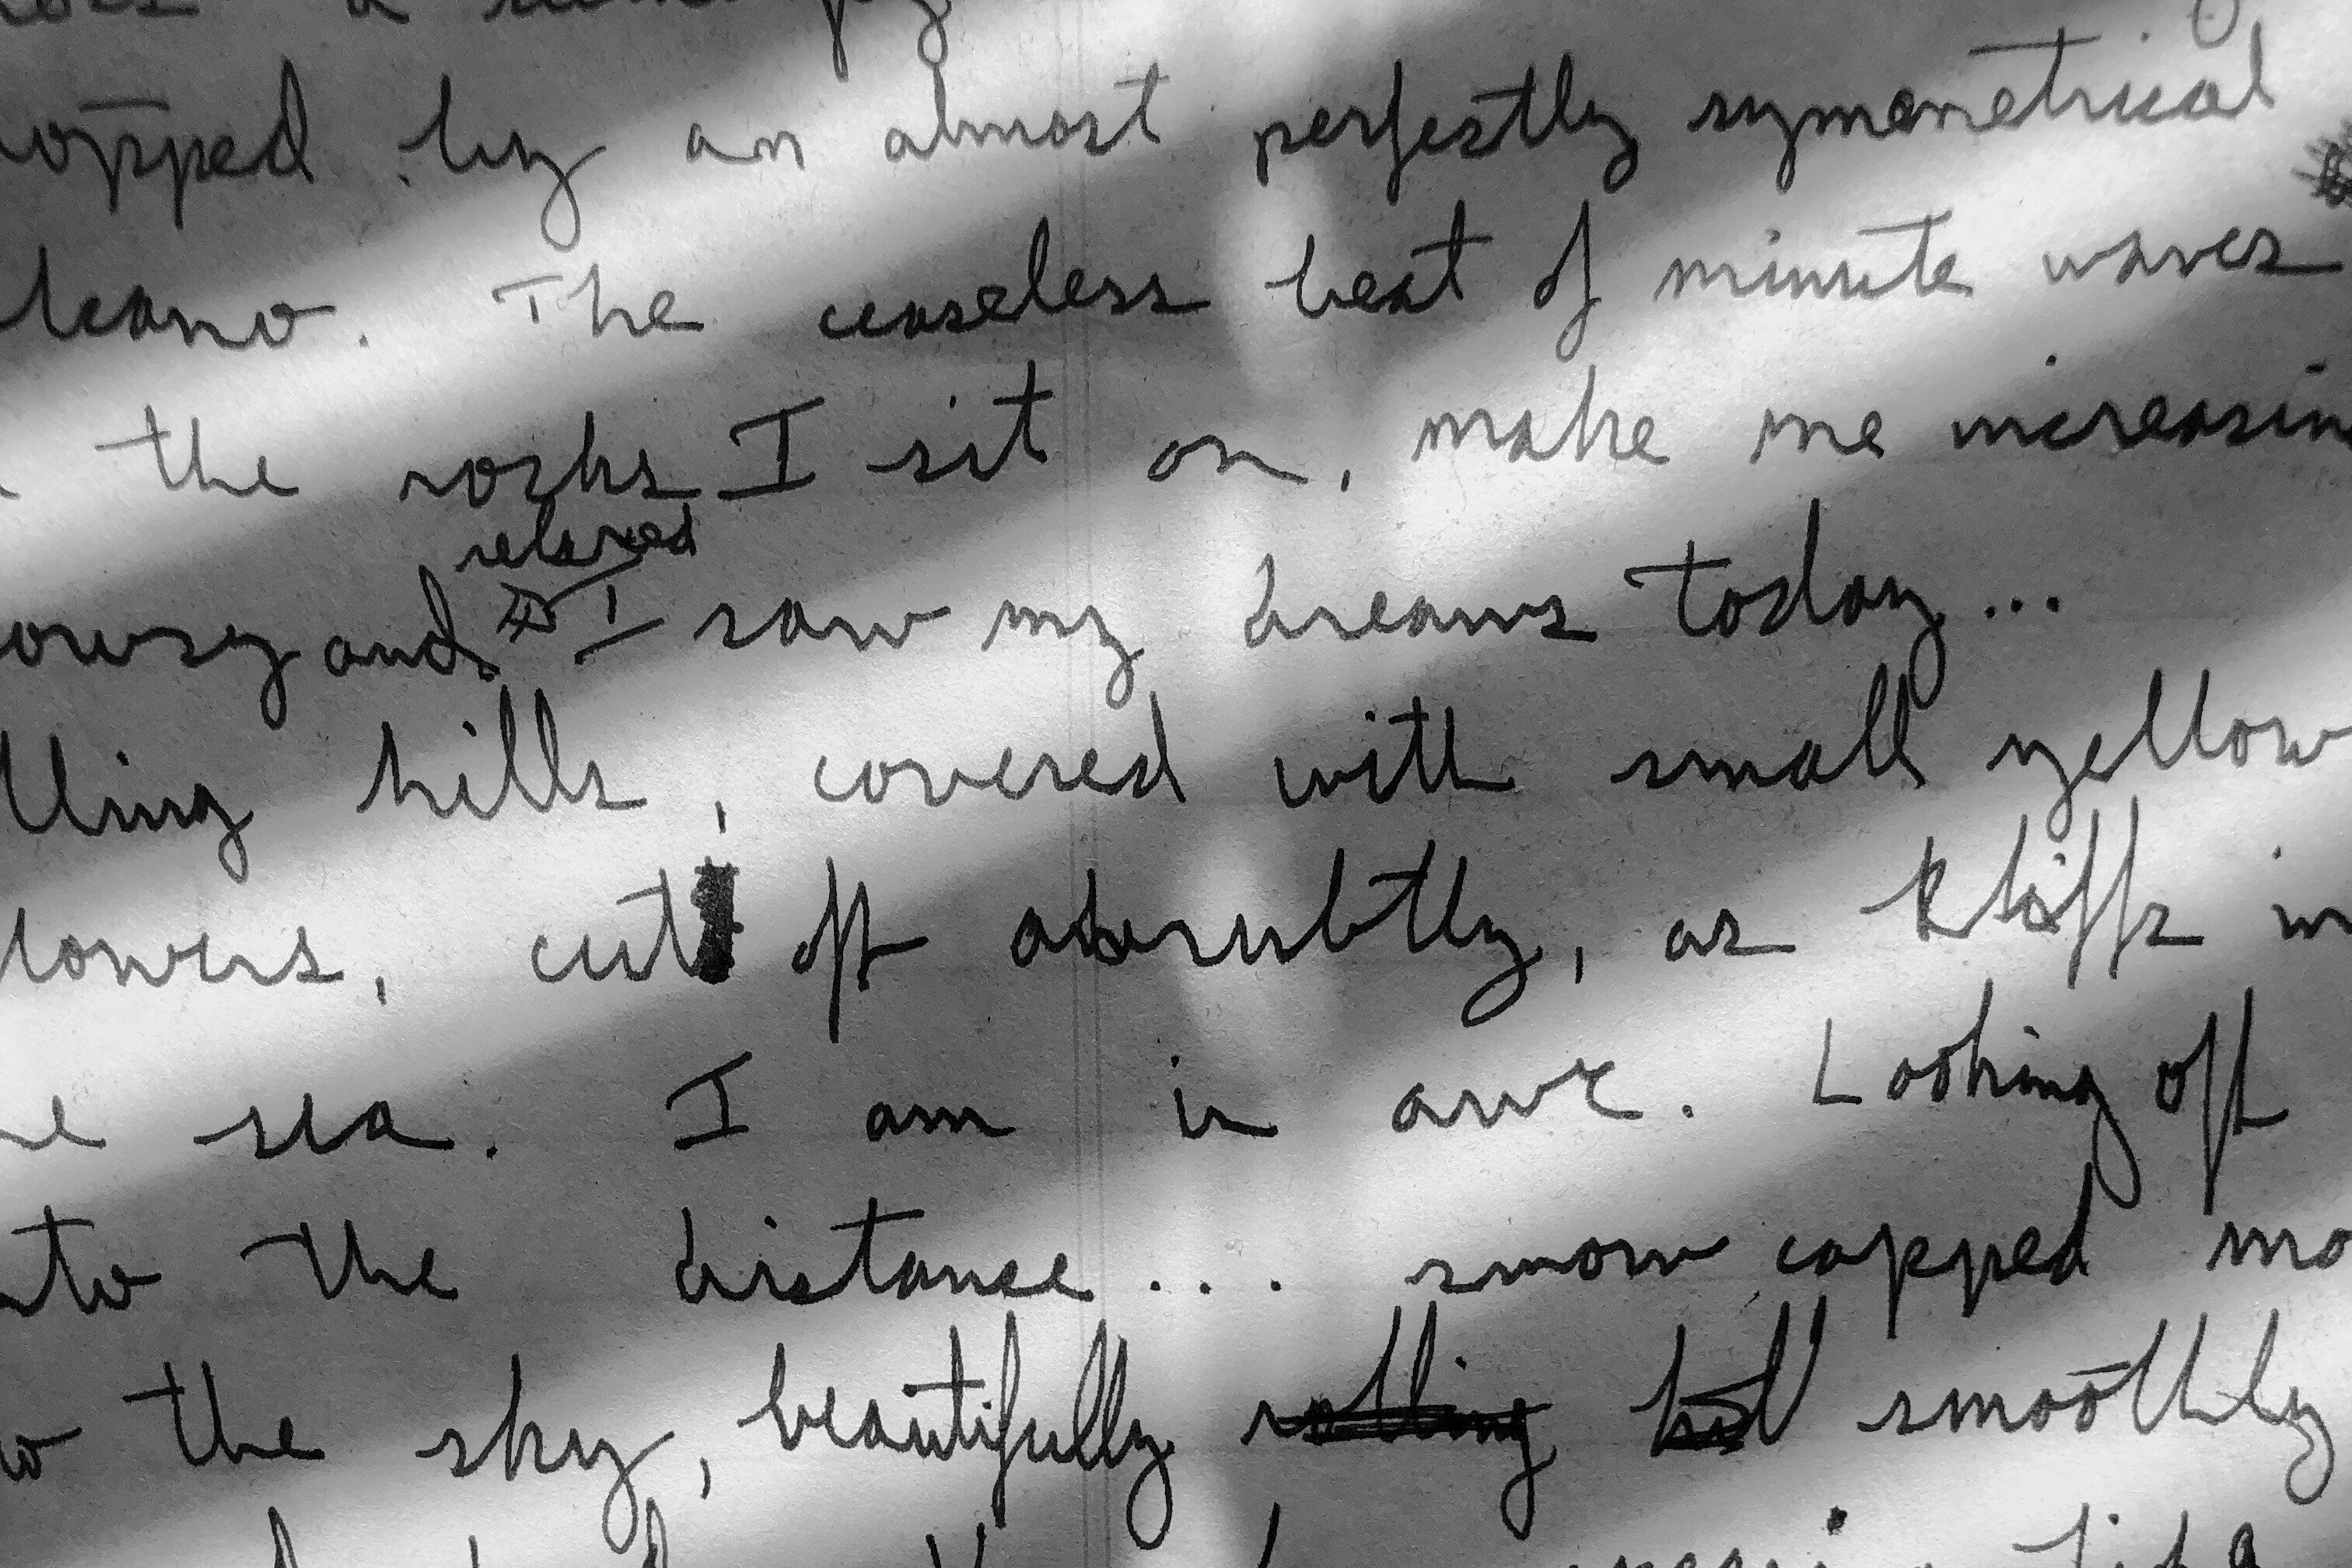 opped by an almost perfectly symmetrical
lcano. The ceaseless beat of minute waves
the rocks I sit on, make me increasin
relaxed
owsy and I saw my dreams today...
lling hills, covered with small yellow
lowers, cut off abrubtly, as kliffs in
e sea. I am in awe. Looking off
nto the distance... snow capped mo
o the sky, beautifully rolling hill smoothly